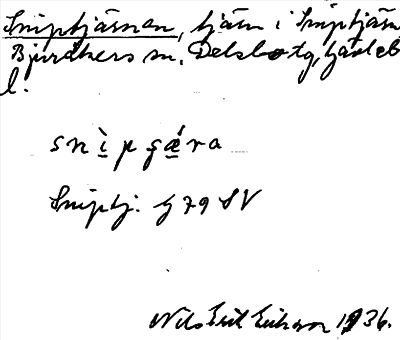 Sniptjärnen, tjärn i Sniptjärn
Bjuråkers sn, Delsbo tg, Gävleb
l.
snìpɕǽra
Sniptj. G 79 SV
Nils Erik Eriksson 1936.